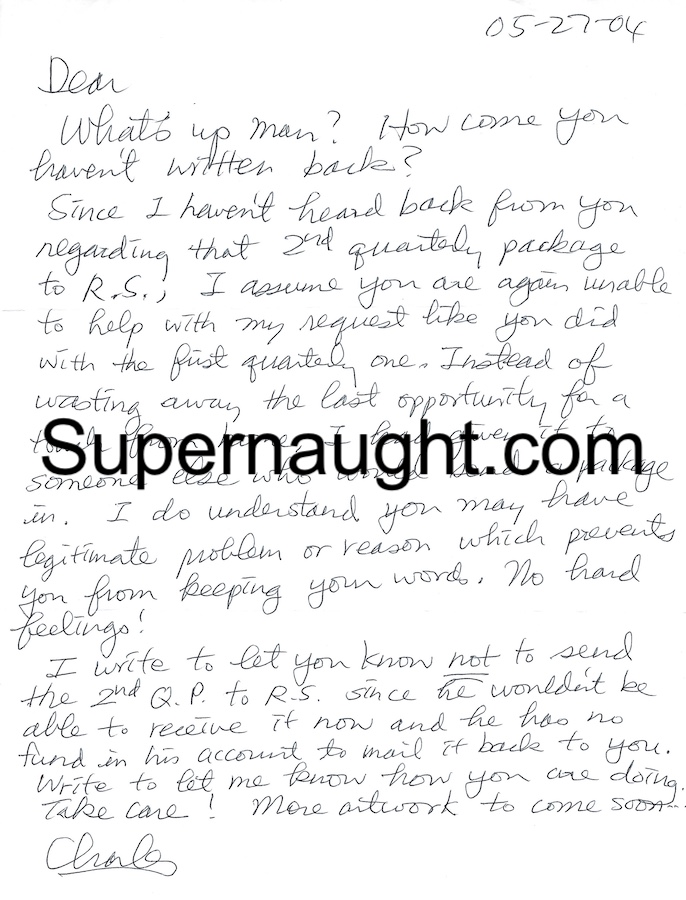 05-27-04
Dear
What's up man? How come you
haven't written back?
Since I haven't heard back from you
regarding that 2nd quarterly package
to R.S., I assume you are again unable
to help with my request like you did
with the first quarterly one. Instead of
wasting away the last opportunity for a
Supernaught.com
someone else who package
in. I do understand you may have
legitimate problem or reason which prevents
you from keeping your words. No hard
feelings!
I write to let you know not to send
the 2nd Q.P. to R.S. since he wouldn't be
able to receive it now and he has no
fund in his account to mail it back to you.
Write to let me know how you are doing.
Take care! More artwork to come soon...
Charles